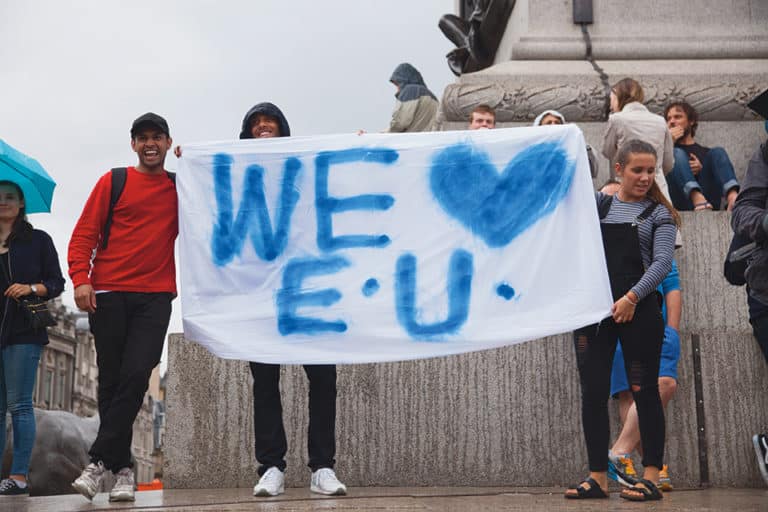 WE ♥
E.U.